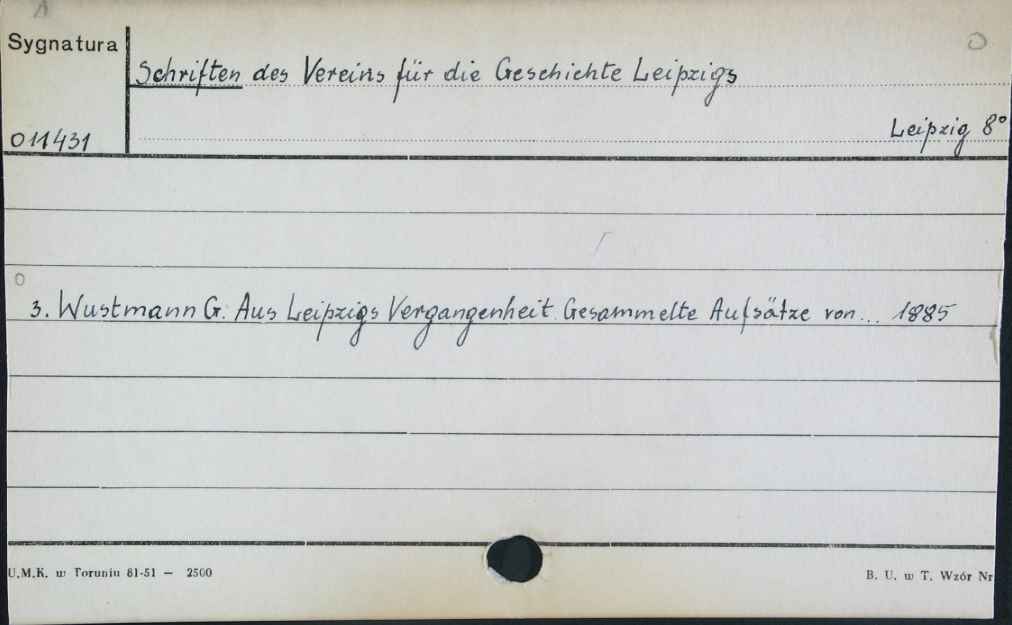 Sygnatura
Schriften des Vereins für die Geschichte Leipzigs
011431
Leipzig 8°
3. Wustmann G. Aus Leipzigs Vergangenheit. Gesammelte Aufsätze von... 1885
U.M.K. w Toruniu 81-51 — 2500
B. U. w T. Wzór Nr